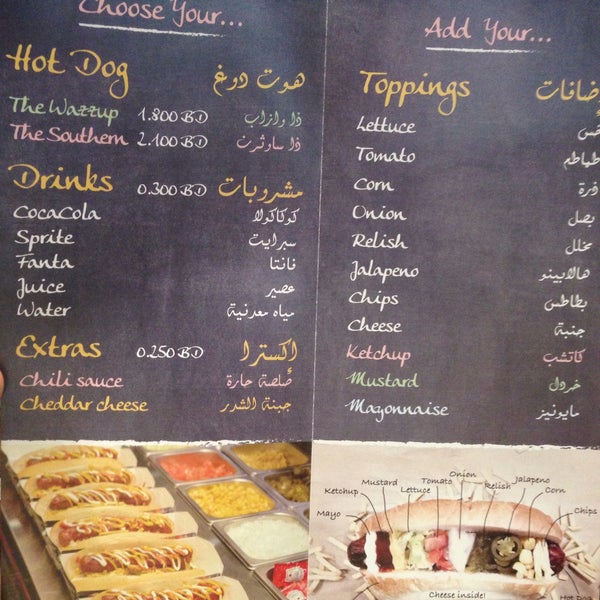 Choose Your...
Hot Dog هوت دوغ
The Wazzup 1.800 BD ذا وازاب
The Southern 2.100 BD ذا ساوثرن
Drinks 0.300 BD مشروبات
CocaCola كوكاكولا
Sprite سبرايت
Fanta فانتا
Juice عصير
Water مياه معدنية
Extras 0.250 BD إكسترا
Chili sauce صلصة حارة
Cheddar cheese جبنة الشدر
Add Your...
Toppings إضافات
Lettuce خس
Tomato طماطم
Corn ذرة
Onion بصل
Relish مخلل
Jalapeno هالابينو
Chips بطاطس
Cheese جبنة
Ketchup كاتشب
Mustard خردل
Mayonnaise مايونيز
Mayo
Ketchup
Mustard
Lettuce
Tomato
Onion
Relish
Jalapeno
Corn
Chips
Cheese inside!
Hot Dog